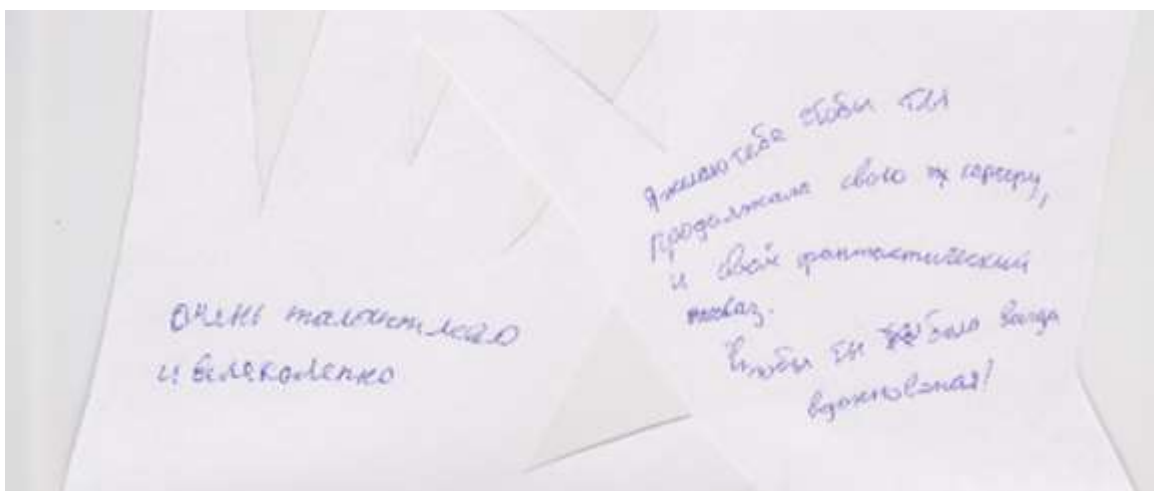 очень талантливо
и великолепно
Я желаю тебе чтобы ты
продолжала свою карьеру,
и свой фантастический
показ.
Чтобы ты была всегда
вдохновеная!